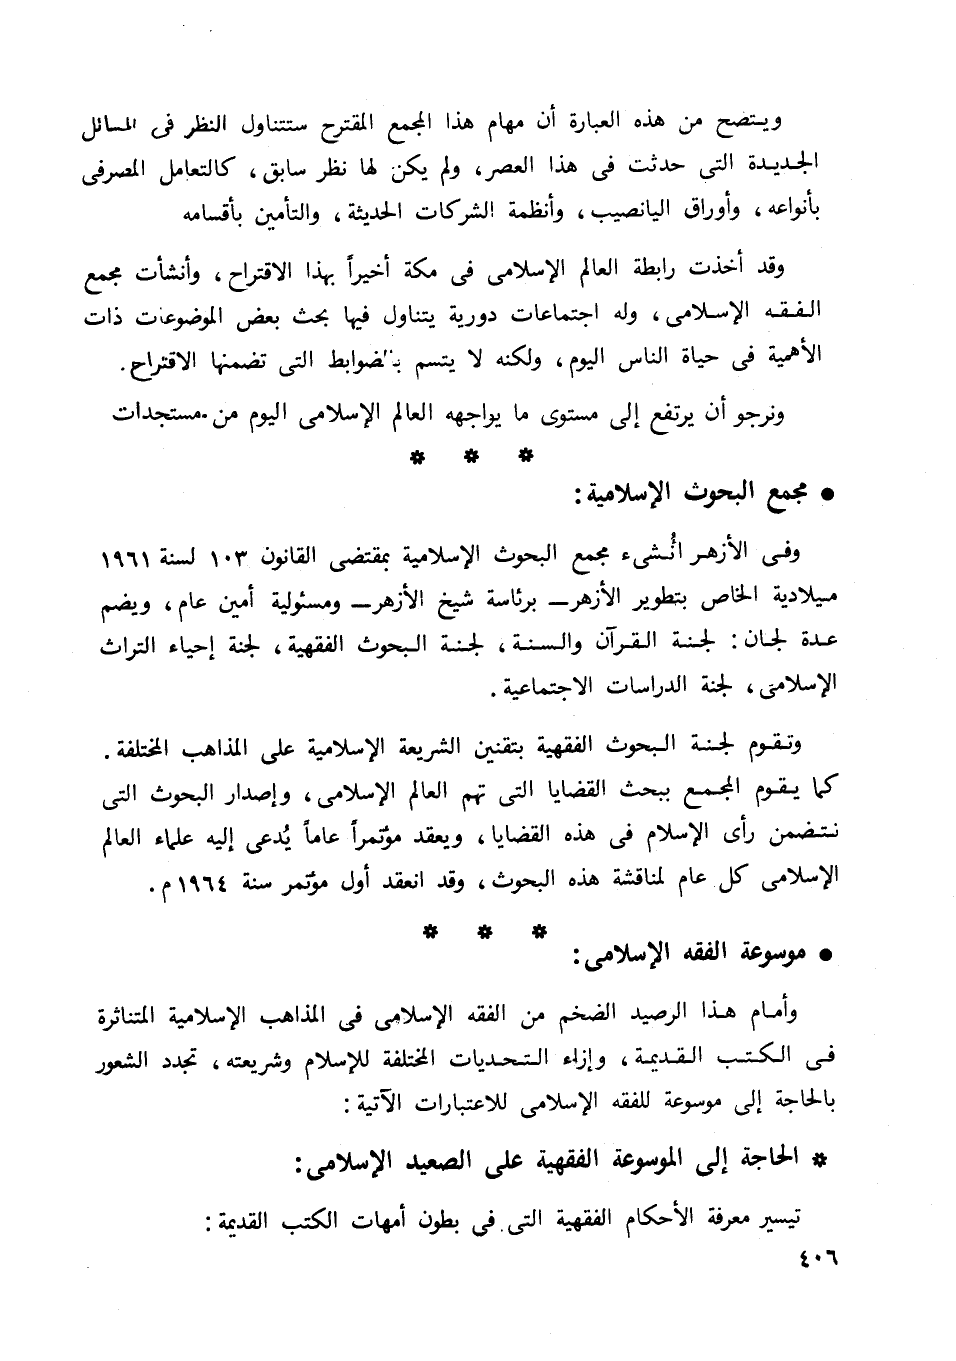 ويتضح من هذه العبارة أن مهام هذا المجمع المقترح ستتناول النظر فى المسائل
الجديدة التى حدثت فى هذا العصر، ولم يكن لها نظر سابق، كالتعامل المصرفى
بأنواعه، وأوراق اليانصيب، وأنظمة الشركات الحديثة، والتأمين بأقسامه
وقد أخذت رابطة العالم الإسلامى فى مكة أخيراً بهذا الاقتراح، وأنشأت مجمع
الفقه الإسلامى، وله اجتماعات دورية يتناول فيها بحث بعض الموضوعات ذات
الأهمية فى حياة الناس اليوم، ولكنه لا يتسم بالضوابط التى تضمنها الاقتراح.
ونرجو أن يرتفع إلى مستوى ما يواجهه العالم الإسلامى اليوم من مستجدات
* * *
● مجمع البحوث الإسلامية:
وفى الأزهر أُنشىء مجمع البحوث الإسلامية بمقتضى القانون ١٠٣ لسنة ١٩٦١
ميلادية الخاص بتطوير الأزهر – برئاسة شيخ الأزهر – ومسئولية أمين عام، ويضم
عدة لجان: لجنة القرآن والسنة، لجنة البحوث الفقهية، لجنة إحياء التراث
الإسلامى، لجنة الدراسات الاجتماعية.
وتقوم لجنة البحوث الفقهية بتقنين الشريعة الإسلامية على المذاهب المختلفة.
كما يقوم المجمع ببحث القضايا التى تهم العالم الإسلامى، وإصدار البحوث التى
تتضمن رأى الإسلام فى هذه القضايا، ويعقد مؤتمراً عاماً يُدعى إليه علماء العالم
الإسلامى كل عام لمناقشة هذه البحوث، وقد انعقد أول مؤتمر سنة ١٩٦٤م.
* * *
● موسوعة الفقه الإسلامى:
وأمام هذا الرصيد الضخم من الفقه الإسلامى فى المذاهب الإسلامية المتناثرة
فى الكتب القديمة، وإزاء التحديات المختلفة للإسلام وشريعته، تجدد الشعور
بالحاجة إلى موسوعة للفقه الإسلامى للاعتبارات الآتية:
* الحاجة إلى الموسوعة الفقهية على الصعيد الإسلامى:
تيسير معرفة الأحكام الفقهية التى فى بطون أمهات الكتب القديمة:
٤٠٦